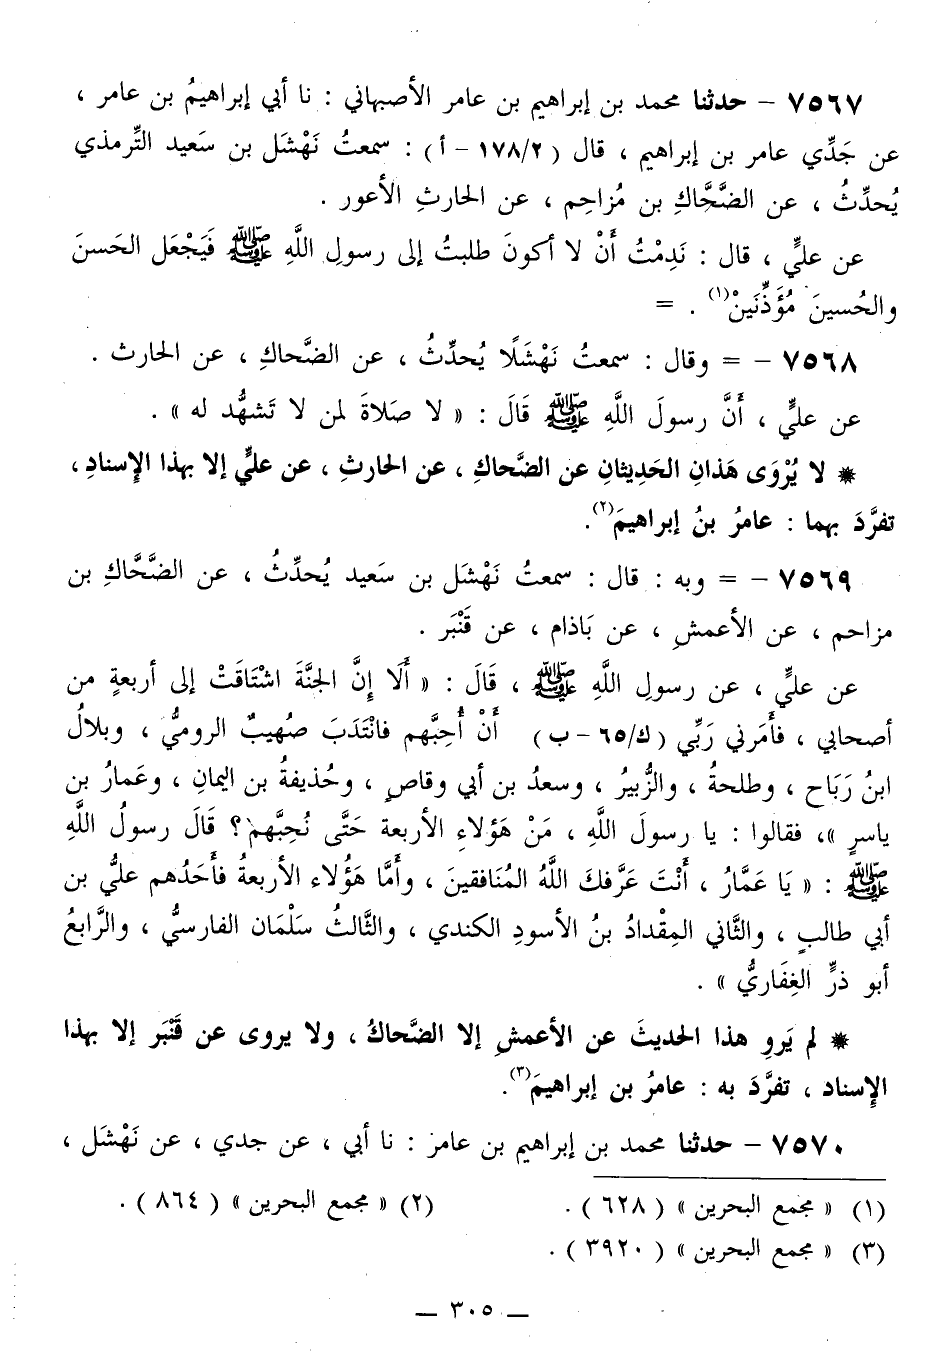 ٧٥٦٧ - حدثنا محمد بن إبراهيم بن عامر الأصبهاني : نا أبي إبراهيمُ بن عامر ،
عن جَدِّي عامر بن إبراهيم ، قال ( ٢/ ١٧٨ - أ ) : سمعتُ نَهْشَل بن سَعيد التِّرمذي
يُحدِّثُ ، عن الضَّحَّاكِ بن مُزاحِم ، عن الحارثِ الأعور .
عن عليٍّ ، قال : نَدِمْتُ أَنْ لا أكونَ طلبتُ إلى رسولِ اللَّهِ ﷺ فَيَجْعَل الحَسنَ
والحُسينَ مُؤَذِّنَينْ(١) . =
٧٥٦٨ - = وقال : سمعتُ نَهْشَلًا يُحدِّثُ ، عن الضَّحاكِ ، عن الحارث .
عن عليٍّ ، أَنَّ رسولَ اللَّهِ ﷺ قَالَ : « لا صَلاةَ لمن لا تَشهُّد له » .
* لا يُرْوَى هَذانِ الحَدِيثانِ عن الضَّحاكِ ، عن الحارثِ ، عن عليٍّ إلا بهذا الإِسنادِ ،
تفرَّدَ بهما : عامرُ بنُ إبراهيمَ(٢).
٧٥٦٩ - = وبه : قال : سمعتُ نَهْشَل بن سَعيد يُحدِّثُ ، عن الضَّحَّاكِ بن
مزاحم ، عن الأعمشِ ، عن بَاذام ، عن قَنْبَر .
عن عليٍّ ، عن رسولِ اللَّهِ ﷺ ، قَالَ : « أَلَا إِنَّ الجنَّةَ اشْتَاقَتْ إلى أربعةٍ من
أصحابي ، فأَمَرني رَبِّي ( ك/٦٥ - ب ) أَنْ أُحِبَّهم فانْتَدَبَ صُهيبٌ الروميُّ ، وبلالُ
ابنُ رَبَاح ، وطلحةُ ، والزُّبيرُ ، وسعدُ بن أبي وقاصٍ ، وحُذيفةُ بن اليمانِ ، وعَمارُ بن
ياسرٍ »، فقالوا : يا رسولَ اللَّهِ ، مَنْ هَؤلاءِ الأربعة حَتَّى نُحِبَّهم؟ قَالَ رسولُ اللَّهِ
ﷺ : « يَا عَمَّارُ ، أَنْتَ عَرَّفكَ اللَّهُ المُنَافقينَ ، وأَمَّا هَؤُلاء الأربعةُ فأَحَدُهم عليُّ بن
أبي طالبٍ ، والثَّاني المِقْدادُ بنُ الأسودِ الكندي ، والثَّالثُ سَلْمَان الفارسيُّ ، والرَّابعُ
أبو ذرٍّ الغِفَاريُّ » .
* لم يَروِ هذا الحديثَ عن الأعمشِ إلا الضَّحاكُ ، ولا يروى عن قَنْبَر إلا بهذا
الإِسناد ، تفرَّدَ به : عامرُ بن إبراهيمَ(٣).
٧٥٧٠ - حدثنا محمد بن إبراهيم بن عامر : نا أبي ، عن جدي ، عن نَهْشَل ،
(١) « مجمع البحرين » ( ٦٢٨ ) . (٢) « مجمع البحرين » ( ٨٦٤ ) .
(٣) « مجمع البحرين » ( ٣٩٢٠ ) .
— ٣٠٥ —